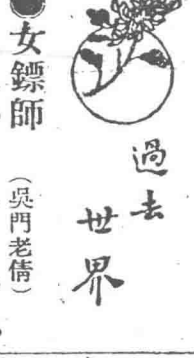 過去世界
●女鏢師
（吳門老倩）